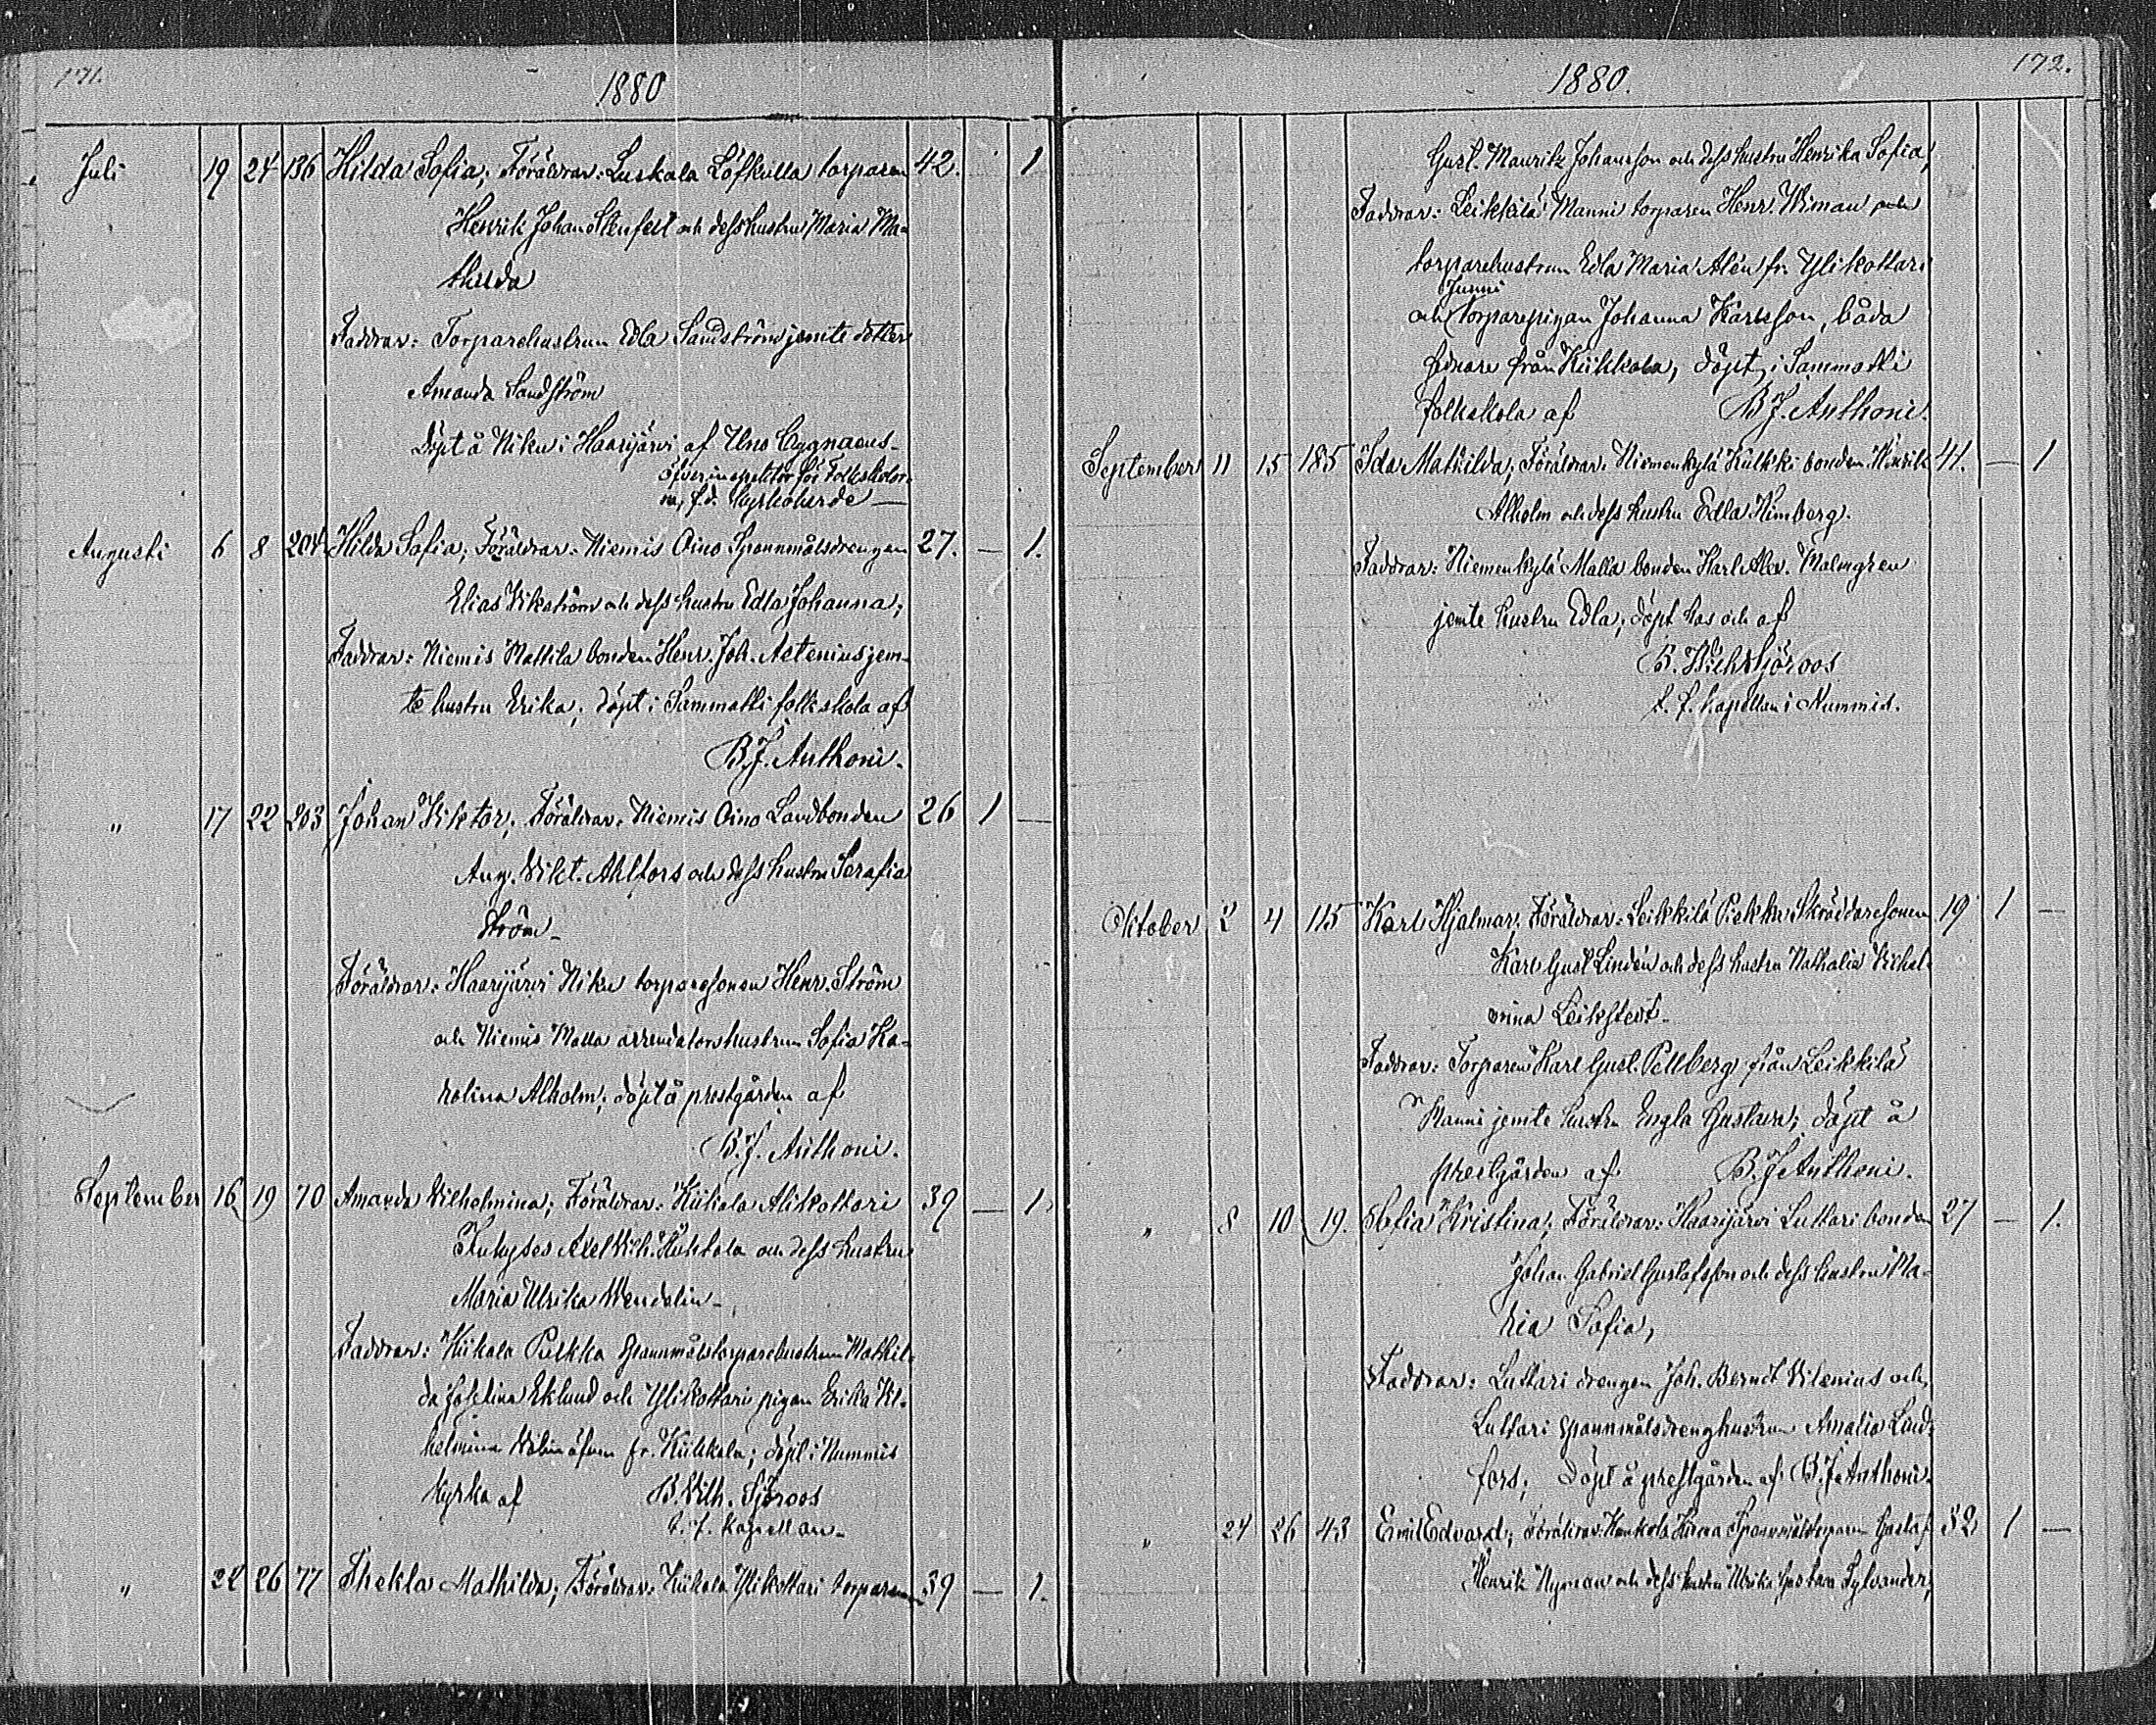 171.
1880
Juli 19 24 136 Hilda Sofia; Föräldrar: Luskala Löfkulla torparen 42. 1
Henrik Johan Stenfelt och dess hustru Maria Ma-
thilda
Faddrar: Torparehustrun Edla Sandström jemte dotter
Amanda Sandström
döpt å Niku i Haarijärvi af Uno Cygnaeus
öfverinspektor för Folkskolor-
na, f.d. Kyrkoherde —
Augusti 6 8 204 Hilda Sofia; Föräldrar: Niemis Oino Spannmålsdrengen 27. — 1.
Elias Vikström och dess hustru Edla Johanna;
Faddrar: Niemis Mattila bonden Henr. Joh. Aetenius jem-
te hustru Erika; döpt i Sammatti folkskola af
B.J. Anthoni.
" 17 22 203 Johan Viktor; Föräldrar: Niemis Oino Landbonden 26 1 —
Aug. Vikt. Ahlfors och dess hustru Serafia
Ström
Föräldrar: Haarijärvi Niku torparesonen Henr. Ström
och Niemis Malla arrendatorshustrun Sofia Ka-
rolina Alholm; döpt å prestgården af
B.J. Anthoni.
September 16 19 70 Amanda Vilhelmina; Föräldrar: Kiikala Alikottari 39 — 1.
Inhyses Axel Vilh. och dess hustru
Maria Ulrika Wendelin
Faddrar: Kiikala Pulkka Spannmålstorparehustrun Mathil-
da Josefina Eklund och Ylikottari pigan Erika Vil-
helmina fr. Kiikkala; döpt i Nummis
Kyrka af B. Vilh. Sjöroos
t. f. Kapellan
" 22 26 77 Thekla Mathilda; Föräldrar: Kiikala Ylikottari torparen 39 — 1.
1880.
172.
Gust. Mauritz Johansson och dess hustru Henrika Sofia;
Faddrar: Leikkilä Manni torparen Henr. Wiman och
torparehustrun Edla Maria Alén fr. Ylikottari
Junni
och torparepigan Johanna Karlsson, båda
sednare från Kiikkala, döpt i Sammatti
folkskola af B.J. Anthoni.
September 11 15 185 Ida Mathilda; Föräldrar: Niemenkylä Kulkki bonden Henrik 41. — 1
Alholm och dess hustru Edla Kimberg.
Faddrar: Niemenkylä Malla bonden Karl Alex. Malmgren
jemte hustru Edla; döpt hos och af
B. Vilh. Sjöroos
t. f. kapellan i Nummis.
Oktober 2 4 115 Karl Hjalmar; Föräldrar: Leikkilä Piekka Skräddaresonen 19 1 —
Karl Gust. Lindén och dess hustru Nathalia Vilhel-
mina Leikstedt
Faddrar: Torparen Karl Gust. Pellberg från Leikkilä
Manni jemte hustru Engla Gustava; döpt å
prestgården af B.J. Anthoni.
" 8 10 19. Sofia Kristina; Föräldrar: Haarijärvi Luttari bonden 27 — 1.
Johan Gabriel Gustafsson och dess hustru Ma-
ria Sofia;
Faddrar: Luttari drengen Joh. Berndt Vilenius och
Luttari spannmålsdrenghustrun Amalia Lind-
fors; döpt å prestgården af B.J. Anthoni.
" 24 26 43 Emil Edvard; Föräldrar: Spannmålstorparen Gustaf 32 1 —
Henrik Nyman och dess hustru Ulrika Gustava Sylvander;